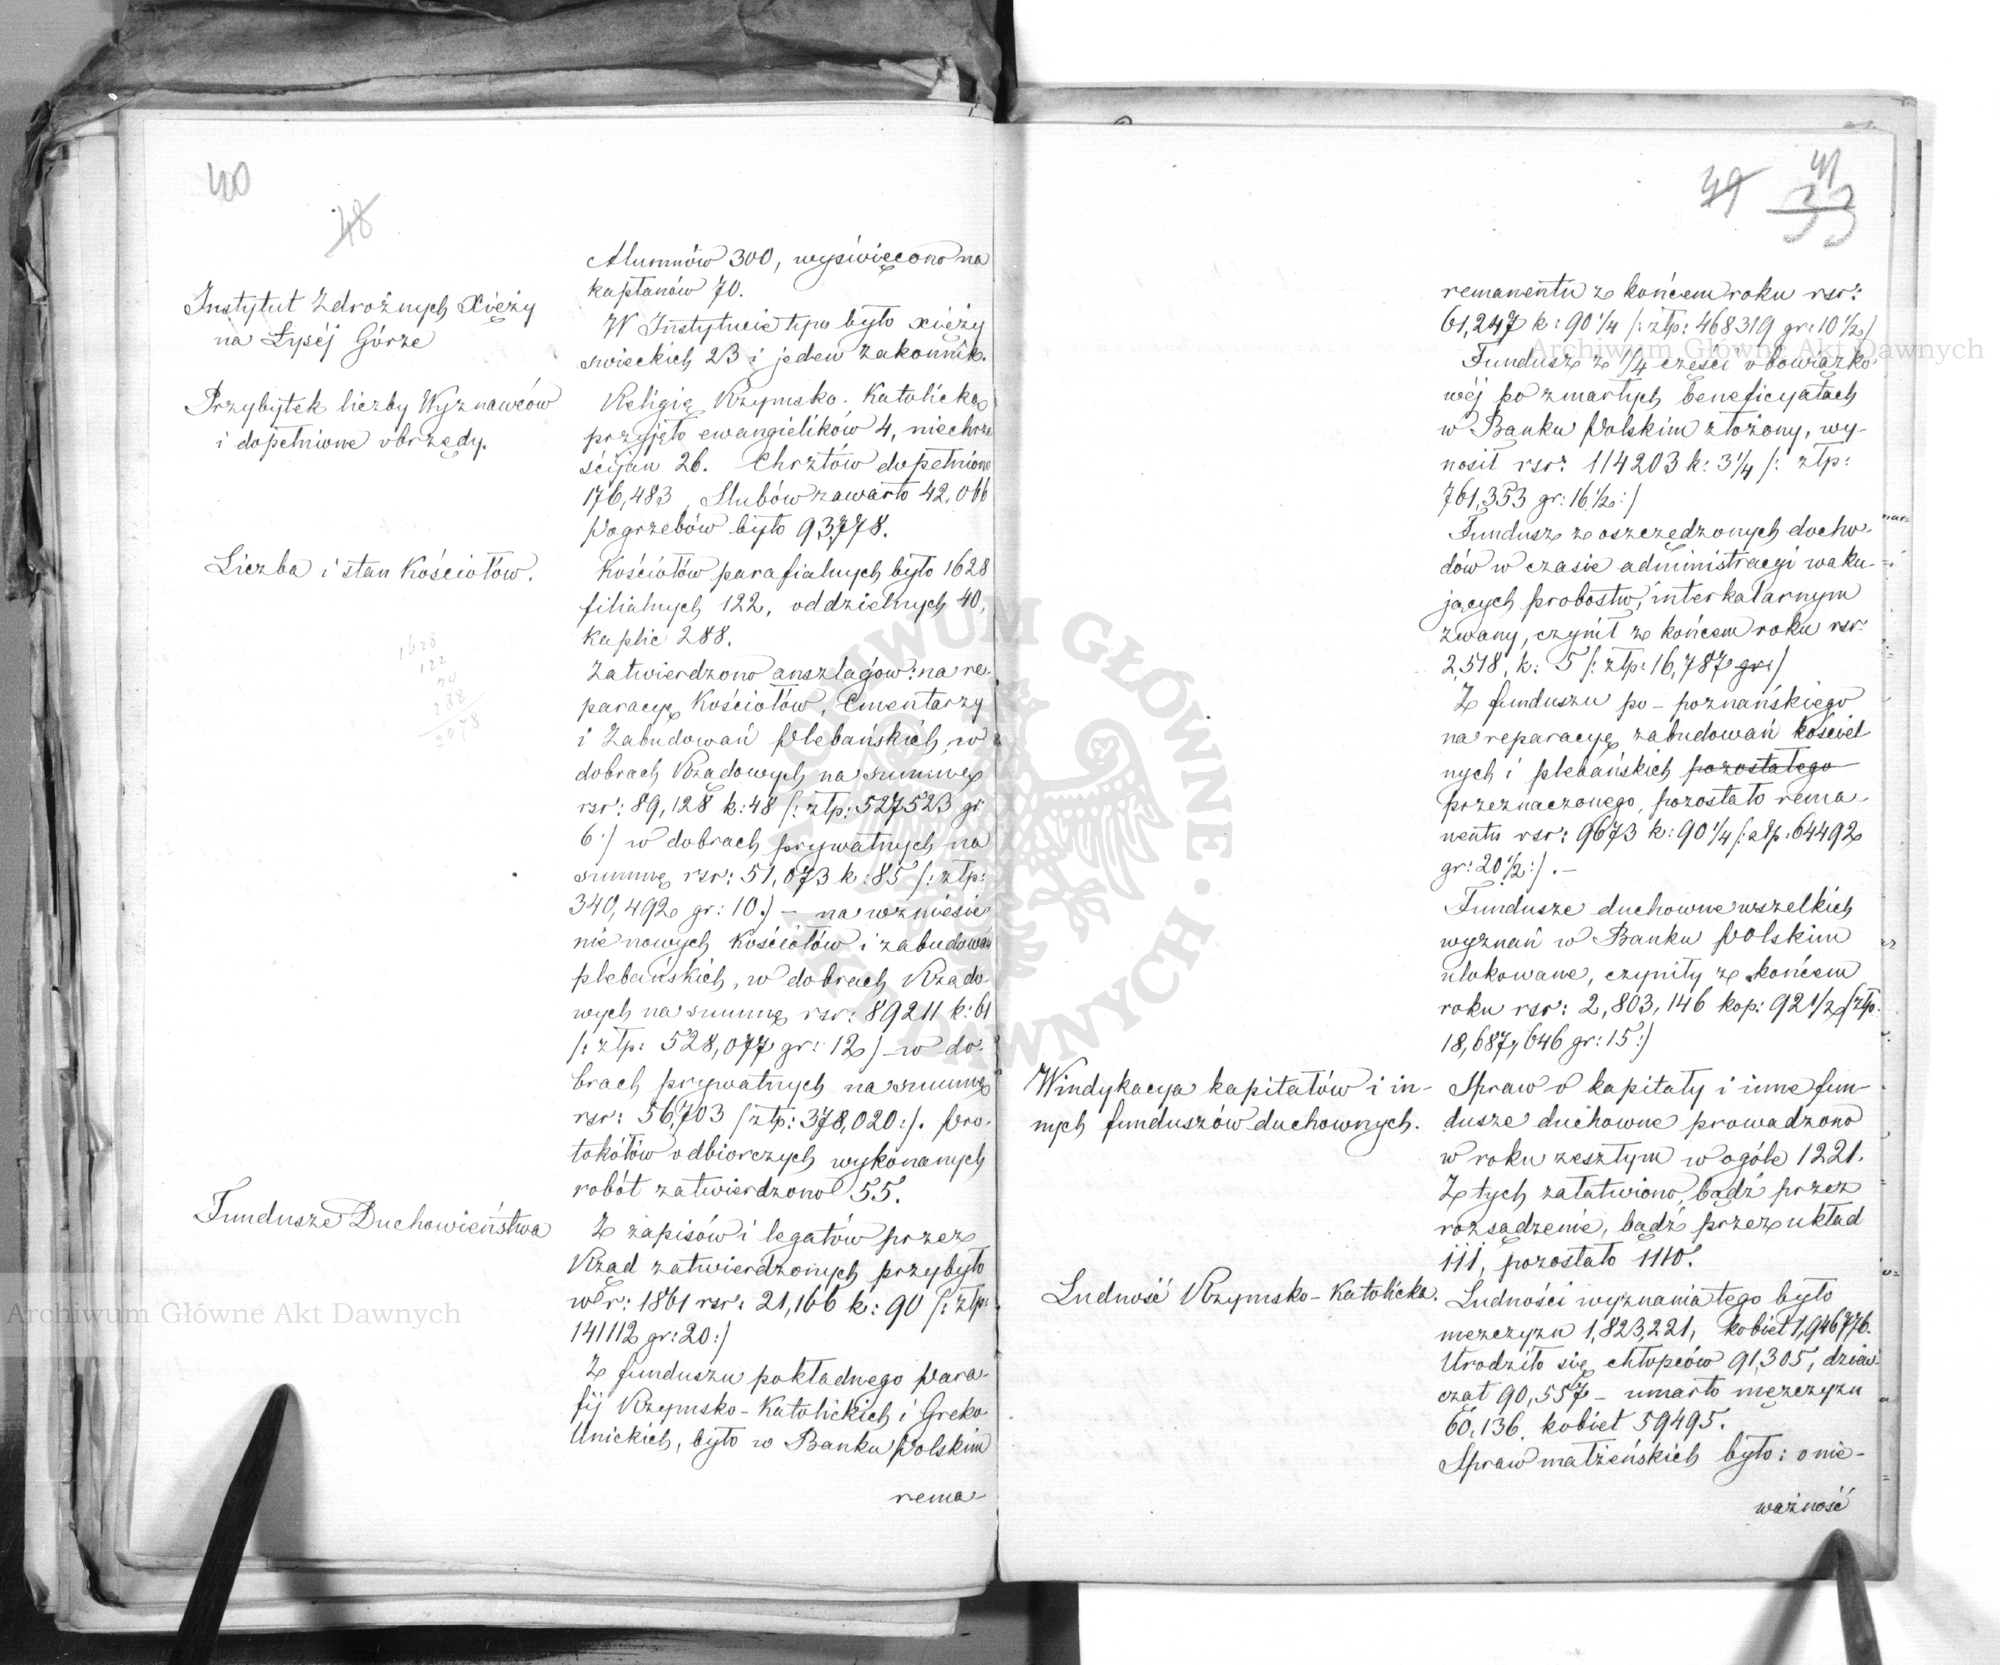 40
48
Alumnów 300, wyświęcono na
kapłanów 70.
Instytut Zdrożnych Xięży
na Łyséj Górze
W Instytucie tym było xięży
swieckich 23 i jeden zakonnik.
Przybytek liczby Wyznawców
i dopełnione obrzędy.
Religię Rzymsko-Katolicką
przyjęto ewangielików 4, niechrze
ścijan 26. Chrztów dopełniono
176,483, Slubów zawarto 42,066
Pogrzebów było 93,778.
Liczba i stan Kościołów.
Kościołów parafialnych było 1628
filialnych 122, oddzielnych 40,
Kaplic 288.
1628
122
40
288
2078
Zatwierdzono anszlagow: na re-
paracyę Kościołów, Cmentarzy
i Zabudowań Plebańskich, w
dobrach Rządowych na summę
rsr: 89,128 k: 48 /: złp: 527523 gr
6:/ w dobrach prywatnych na
summę rsr: 51,073 k: 85 /: złp:
340,492 gr: 10:/ – na wzniesie
nie nowych Kościołów i zabudowań
plebańskich, w dobrach Rządo-
wych na summę rsr: 89211 k: 61
/: złp: 528,077 gr: 12/ – w do-
brach prywatnych na summę
rsr: 56,703 /złp: 378,020:/. Pro-
tokółów odbiorczych wykonanych
robót zatwierdzono 55.
Fundusze Duchowieństwa
Z zapisów i legatów przez
Rząd zatwierdzonych przybyło
w r: 1861 rsr: 21,166 k: 90 /: złp:
141112 gr: 20:/
Z funduszu pokładnego Para-
fij Rzymsko-Katolickich i Greko
Unickich, było w Banku Polskim
rema-
49 41
33
remanentu z końcem roku rsr:
61,247 k: 90 1/4 /: złp: 468319 gr: 10 1/2/
Fundusz z 1/4 części obowiązko-
wéj po zmarłych beneficyatach
w Banku Polskim złożony, wy-
nosił rsr: 114203 k: 3 1/4 /: złp:
761,353 gr: 16 1/2:/
Fundusz z oszczędzonych docho-
dów w czasie administracyi waku-
jących probostw, interkalarnym
zwany, czynił z końcem roku rsr:
2,518, k: 5 /: złp: 16,787 gr:/
Z funduszu po-poznańskiego
na reparacyę zabudowań kościel
nych i plebańskich pozostałego
przeznaczonego, pozostało rema-
nentu rsr: 9673 k: 90 1/4 /: złp: 64492
gr: 20 1/2:/. –
Fundusze duchowne wszelkich
wyznań w Banku Polskim
ulokowane, czyniły z końcem
roku rsr: 2,803,146 kop: 92 1/2 /złp.
18,687,646 gr: 15:/
Windykacya kapitałów i in-
nych funduszów duchownych.
Spraw o kapitały i inne fun-
dusze duchowne prowadzono
w roku zeszłym w ogóle 1221.
Z tych załatwiono, bądź przez
rozsądzenie, bądź przez układ
111, pozostało 1110.
Ludność Rzymsko-Katolicka.
Ludności wyznania tego było
mężczyzn 1,823,221, kobiet 1,946,776.
Urodziło się chłopców 91,305, dziew
cząt 90,557 – umarło mężczyzn
60,136, kobiet 59495.
Spraw małżeńskich było: o nie-
ważność
Archiwum Główne Akt Dawnych
Archiwum Główne Akt Dawnych
ARCHIWUM GŁÓWNE AKT DAWNYCH